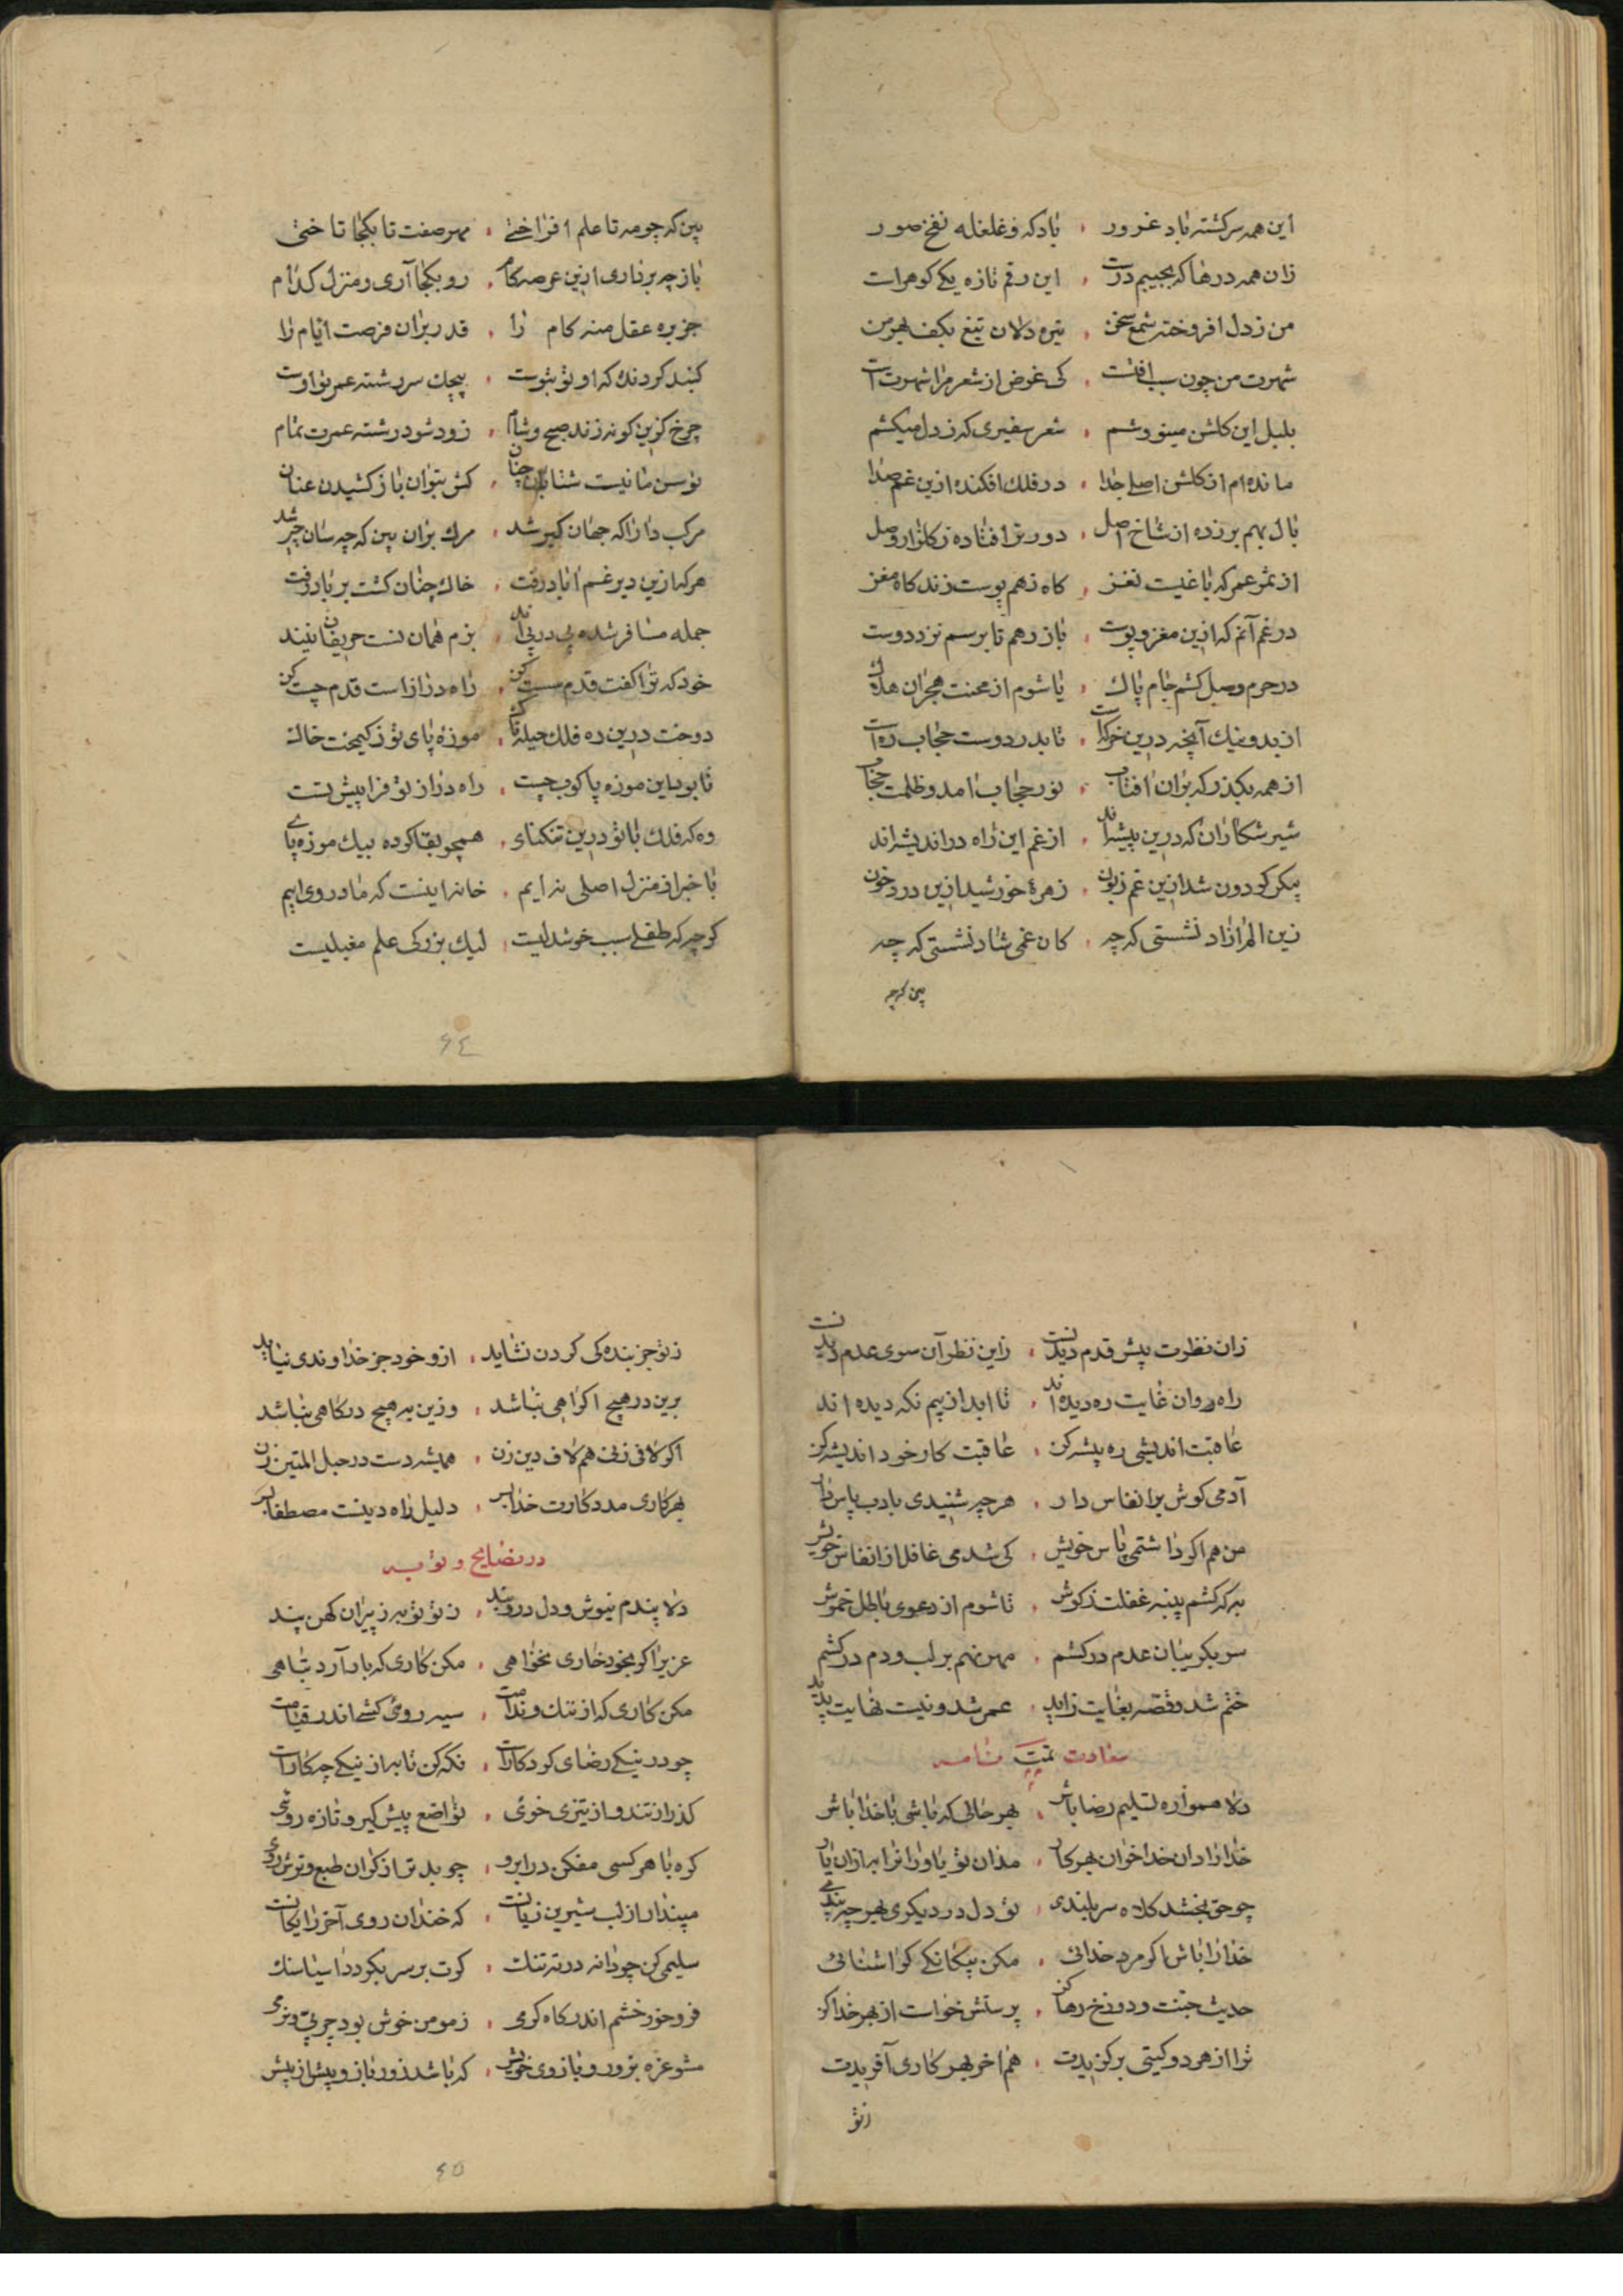 این همه سرکشته باد غرور ، باد که و غلغله نفخ صور
زان همه درها که بجیبم درست ، این رقم تازه یکی کوهراست
من ز دل افروخته شمع سخن ، تیره دلان تیغ بکف بهر من
شهرت من چون سبب افتست ، کی غرض از شعر مرا شهرت است
بلبل این کلشن مینو وشم ، شعر سفیری که ز دل میکشم
مانده ام از کلشن اصلی جدا ، در فلک افکنده ازین غم صدا
بال بهم بر زده از شاخ اصل ، دور تر افتاده ز کلزار وصل
از ثمر عمر که باغیست نغز ، کاه زهم پوست زند کاه مغز
در غم آنم که ازین مغز و پوست ، باز رهم تا برسم نزد دوست
در حرم وصل کشم جام پاک ، یا شوم از محنت هجران هلاک
از بد و نیک آنچه درین خرکاست ، تا بدر دوست حجاب ره است
از همه بکذر که بران افتاب ، نور حجاب امد و ظلمت حجاب
شیر شکاران که درین بیشه اند ، از غم این راه در اندیشه اند
پیکر کردون شد ازین غم زبون ، زهرهٔ خورشید ازین درد خون
زین الم ازاد نشستی که چه ، کان غمی شاد نشستی که چه
بین که چه
بین که چو مه تا علم افراختی ، مهر صفت تا بکجا تاختی
باز چه برداری ازین عرصه کام ، رو بکجا آری و منزل کدام
جز بره عقل منه کام را ، قدر بدان فرصت ایام را
کنبد کردنده که او تو بتوست ، پیچک سر رشته عمر تو اوست
چرخ کزین کونه زند صبح و شام ، زود شود رشته عمرت تمام
توسن ما نیست شتابان چنان ، کش بتوان باز کشیدن عنان
مرکب دارا که جهان کیر شد ، مرک بران بین که چه سان چیر شد
هر که ازین دیر غم اباد رفت ، خاک چنان کشت بر باد رفت
جمله مسافر شده پی در پی اند ، بزم همان نست حریفان نیند
خود که ترا کفت قدم سست کن ، راه درازاست قدم چست کن
دوخت درین ره فلک حیله ناک ، موزهٔ پای تو ز کیمخت خاک
تا بود این موزه پاکوب چست ، راه دراز تو فرا پیش تست
وه که فلک با تو درین تنکنای ، همچو بقا کرده بیک موزه پای
با خبر از منزل اصلی نه ایم ، خانه اینست که ما در وی ایم
کر چه که طفلی سبب خوشدلیست ، لیک بزرکی علم مقبلیست
۶٤
زان نظرت پیش قدم دیدنست ، زاین نظر آن سوی عدم دیدنست
راه روان غایت ره دیده اند ، تا ابد از بیم نکه دیده اند
عاقبت اندیشی ره پیشه کن ، عاقبت کار خود اندیشه کن
آدمی کوش بر انفاس دار ، هر چه شنیدی بادب پاس دار
من هم اکر داشتمی پاس خویش ، کی شدمی غافل از انفاس خویش
به که کشم پنبه غفلت ز کوش ، تا شوم از دعوی باطل خموش
سر بکریبان عدم در کشم ، مهر نهم بر لب و دم در کشم
ختم شد و قصه بغایت رسید ، عمر شد و نیست نهایت پدید
سعادت نامه
دلا همواره تسلیم رضا باش ، بهر حالی که باشی با خدا باش
خدا را دان خدا خوان بهر کار ، مدان تو یاوری را به از ان یار
چو حق بخشد کلاه سر بلندی ، تو دل در دیکری بهر چه بندی
خدا را باش اکر مرد خدائی ، مکن بیکانکی کر اشنائی
حدیث جنت و دوزخ رها کن ، پرستش خواست از بهر خدا کن
ترا از هر دو کیتی بر کزیدت ، هم اخر بهر کاری آفریدت
ز تو
ز تو جز بنده کی کردن نشاید ، ازو خود جز خداوندی نیاید
برین در هیچ اکراهی نباشد ، وزین به هیچ درکاهی نباشد
اکر لافی زنی هم لاف دین زن ، همیشه دست در حبل المتین زن
بهر کاری مدد کارت خدا بس ، دلیل راه دینت مصطفا بس
در نصایح و توبه
دلا پندم نیوش و دل در و بند ، ز نو توبه ز پیران کهن پند
عزیزا کر بخود خاری نخواهی ، مکن کاری که بار آرد تباهی
مکن کاری که از ننک و ندامت ، سیه روئی کشی اندر قیامت
چو در نیکی رضای کردکاراست ، نکه کن تا به از نیکی چه کاراست
کذر از تند و از تیزی خوئی ، تواضع پیش کیر و تازه روئی
کره با هر کسی مفکن در ابرو ، چو بد تر از کران طبع و ترش روی
مپندار از لب شیرین زیانست ، که خندان روی آخر رایکانست
سلیمی کن چو دانه در ته تنک ، کرت بر سر بکردد اسیا سنک
فرو خور خشم اندر کاه کرمی ، ز مومن خوش بود چربی و نرمی
مشو غره بزور و بازوی خویش ، که باشد زور بازو بیش از بیش
۶۵